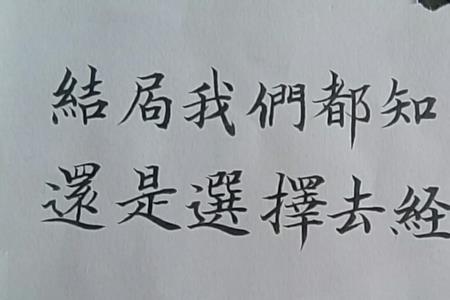 結局我們都知
還是選擇去経